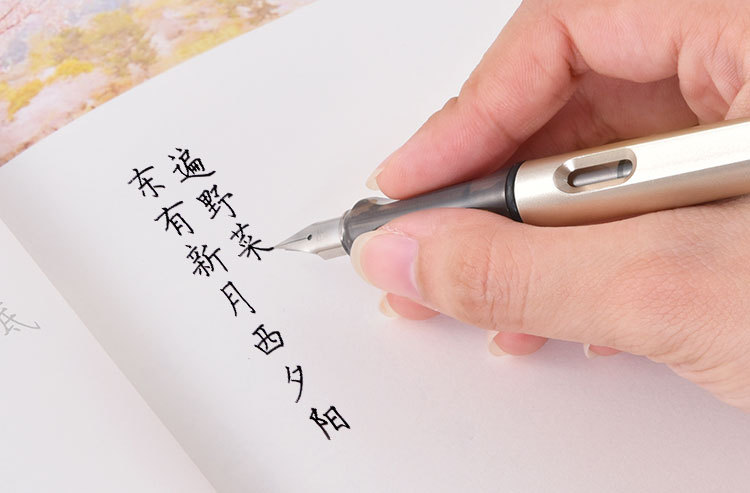 底
东有新月西夕阳
遍野菜